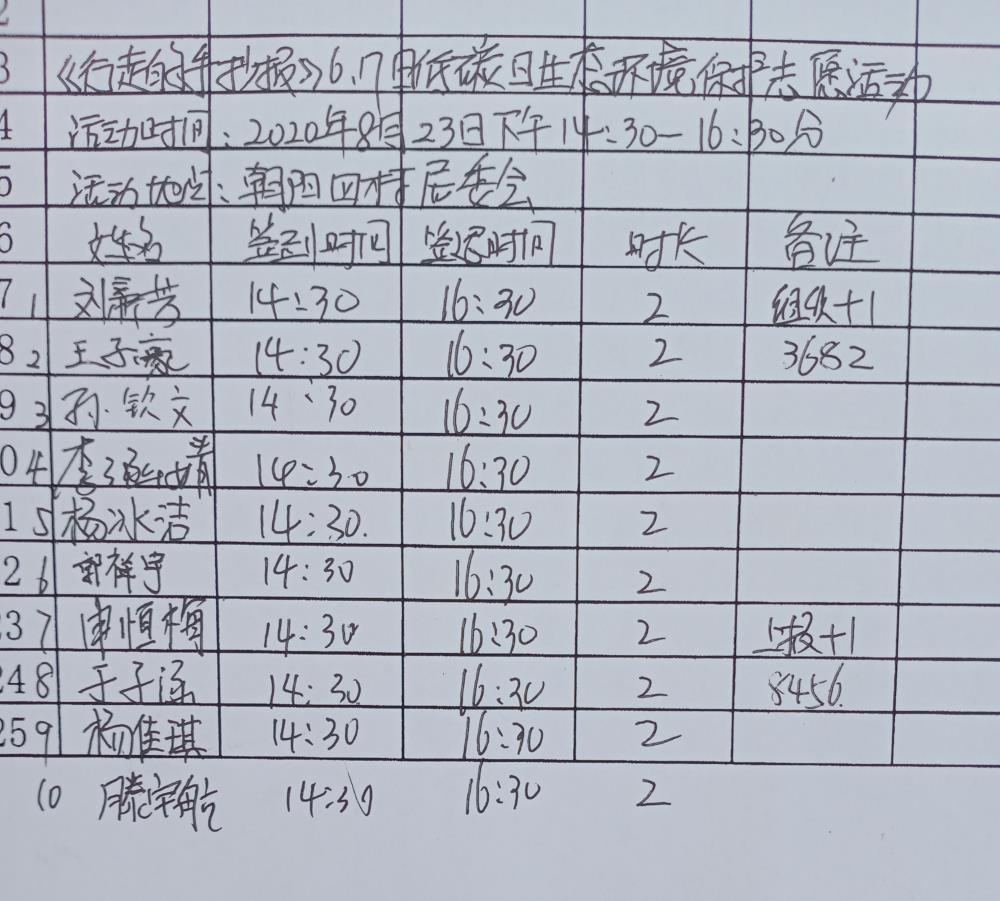 2
3 《行走的手抄报》6.17全国低碳日生态环境保护志愿活动
4 活动时间：2020年8月23日下午14:30—16:30分
5 活动地点：朝阳四村居委会
6 姓名 签到时间 签退时间 时长 备注
7 1 刘 芳 14:30 16:30 2 组织+1
8 2 王子豪 14:30 16:30 2 3682
9 3 孙钦文 14:30 16:30 2
0 4 李 婧 14:30 16:30 2
1 5 杨冰洁 14:30. 16:30 2
2 6 郭祥宇 14:30 16:30 2
23 7 申恒梅 14:30 16:30 2 上报+1
24 8 于子涵 14:30 16:30 2 8456.
25 9 杨佳琪 14:30 16:30 2
10 滕宇航 14:30 16:30 2